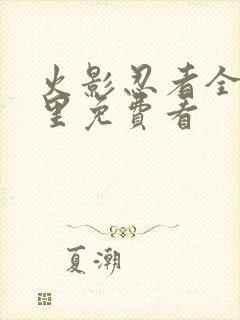 火影忍者全
里免費看
夏潮